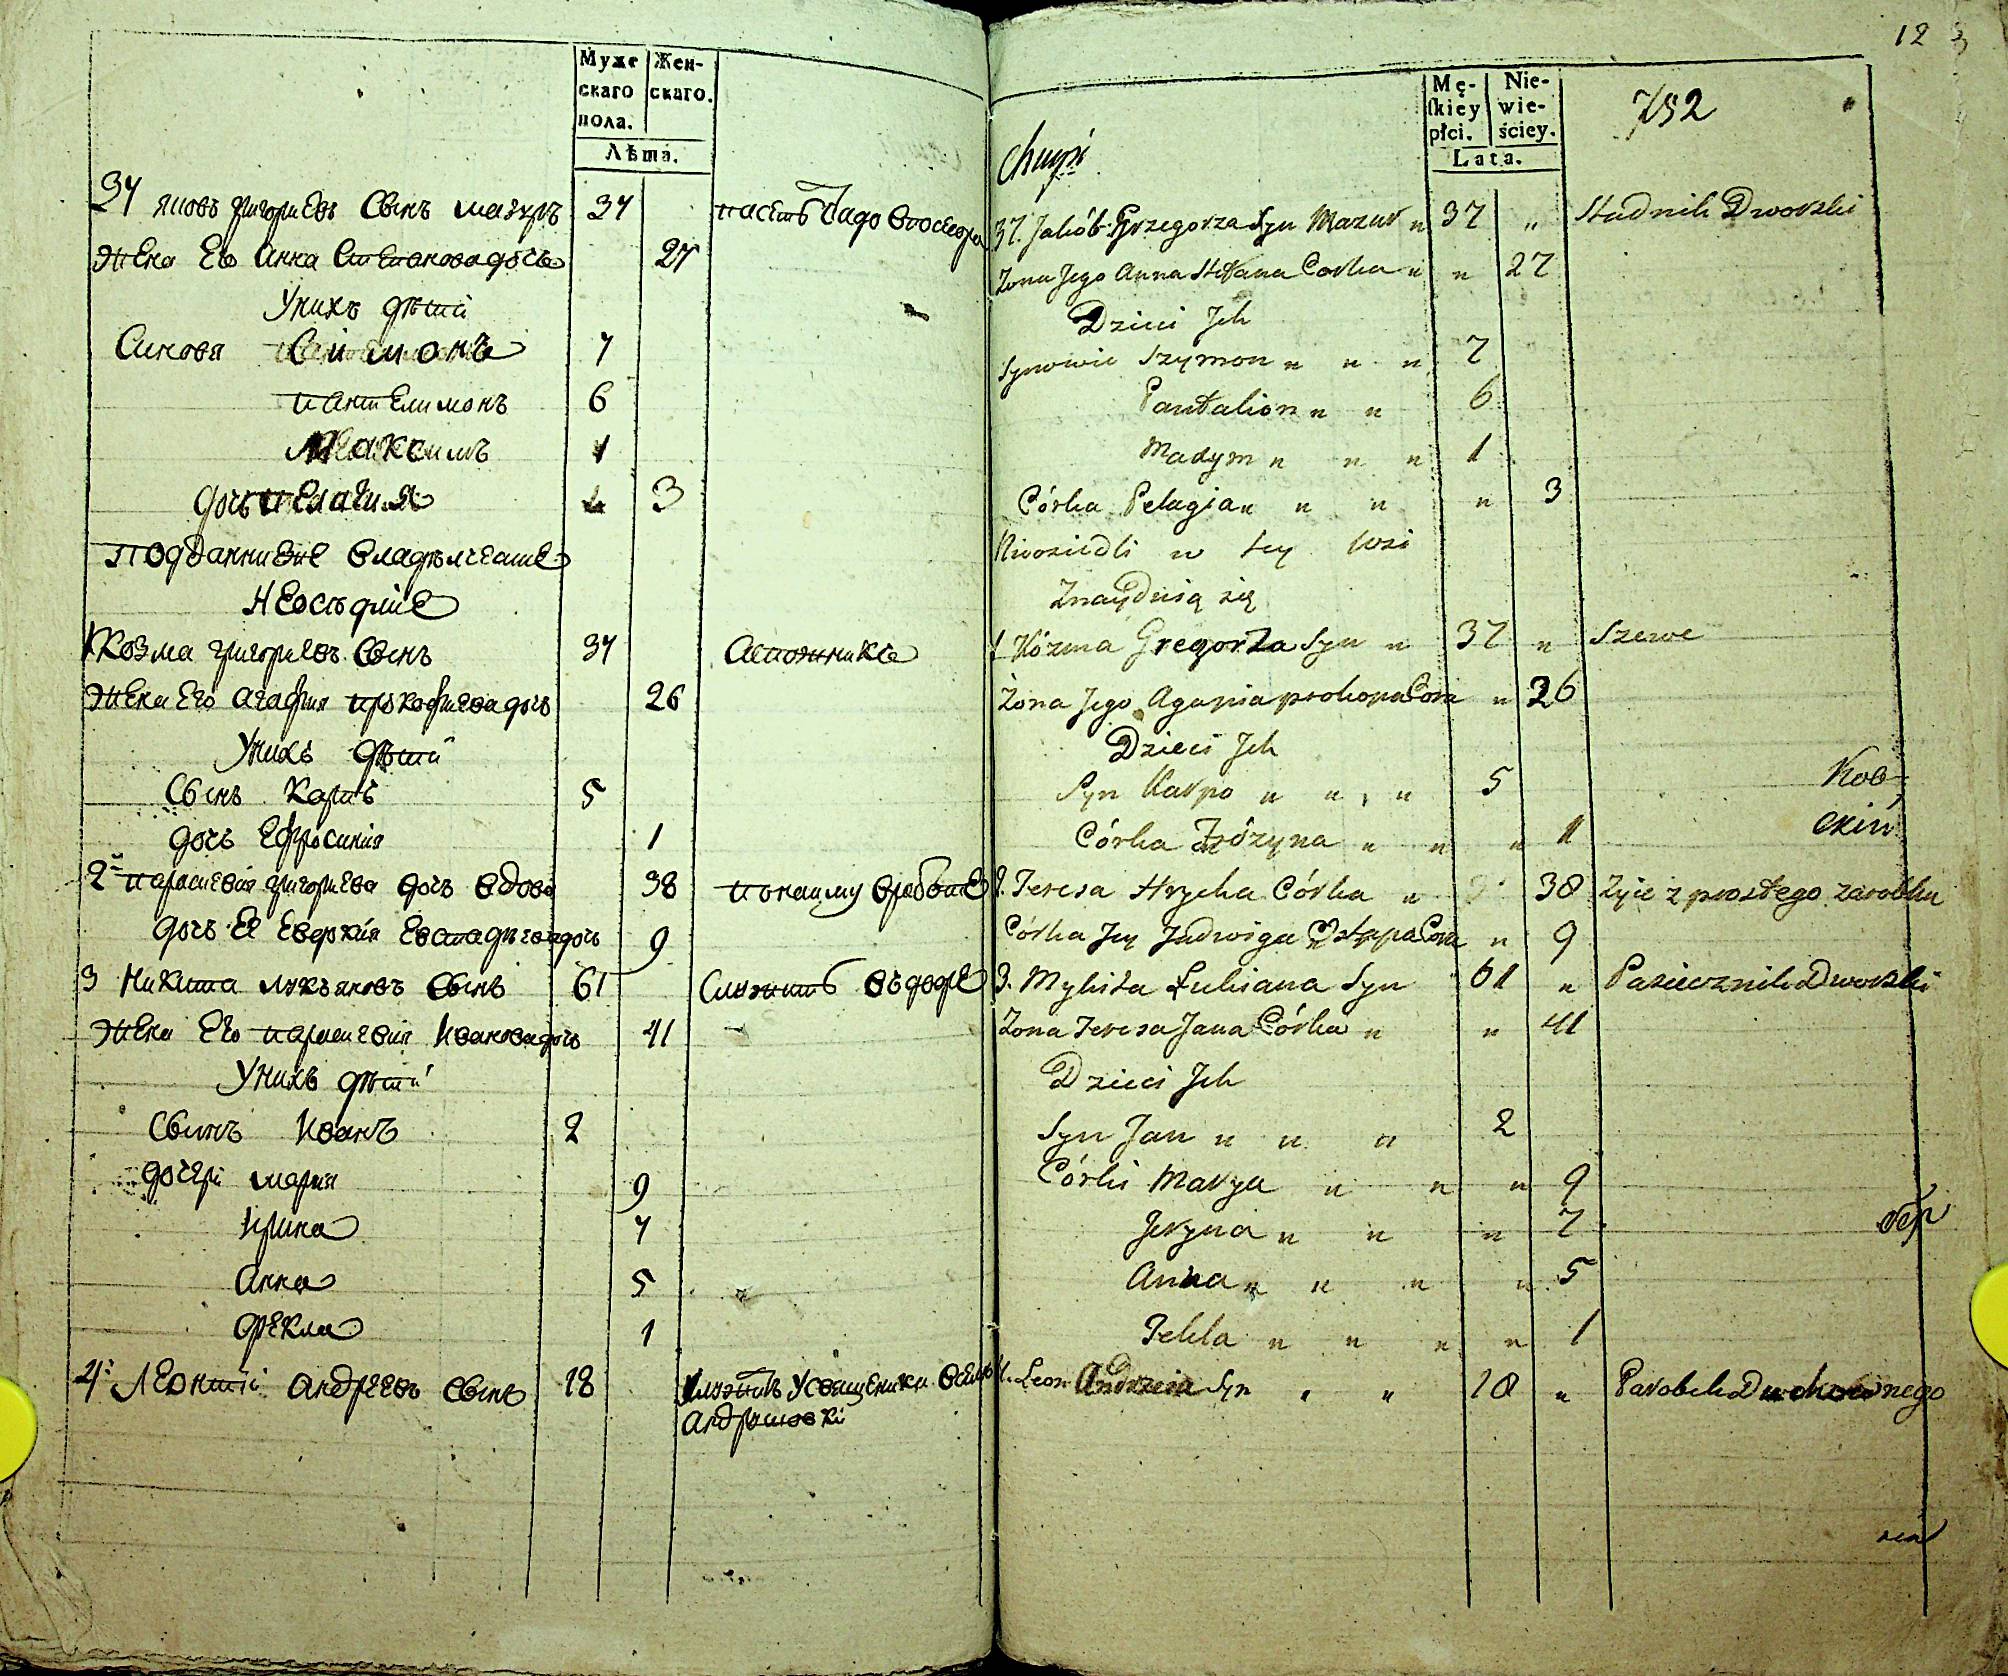 Муже
скаго
пола.
Жен-
скаго.
Лѣта.
37 яковъ григориевъ Сынъ мазуръ 37
Жена Его Анна Степановадочь 27
Унихъ дѣтій
Синовя Симонъ 7
пантелимонъ 6
Максимъ 1
дочь пелагия 3
Подданние владѣлчешие
Неосѣдліе
1 Козма григориевъ Сынъ 37
Жена Его агафия прокофиевадочь 26
Унихъ дѣтій
Сынъ Карпъ 5
дочь Ефросиния 1
2й параскевия григориева дочь вдова 38
дочь Её Евдокия дочь 9
3 Никита лукъяновъ Сынъ 61 Служитъ въдворѣ
Жена Его параскевия Ивановадочь 41
Унихъ дѣтій
Сынъ Иванъ 2
дочери мария 9
Ирина 7
Анна 5
Фекла 1
4й Леонтій андреевъ Сынъ 18 Служитъ Усвященика
12
Mę-
skiey
płci.
Nie-
wie-
ściey.
Lata.
752
37. Jakób Grzegorza Syn Mazur „ 37 „ Stadnik Dworski
Żona Jego Anna Stefana Corka „ „ 27
Dzieci Jch
Synowie Szymon „ „ „ 7
Pantalion „ „ 6
Maxym „ „ „ 1
Córka Pelagia „ „ „ „ 3
Nieosiedli w tey wsi
Znaydują się
1 Kózma Gregorza Syn „ 37 „ Szewc
Żona Jego Agapia prokopa Cora „ 26
Dzieci Jch
Syn Karpo „ „ „ 5
Córka Frózyna „ „ „ 1
2. Teresa Hrycka Córka „ 38 Zyie z prostego zarobku
Córka Jey Jadwiga Ostapa Cora „ 9
3. Mykita Łukiana Syn 61 „ Pasiecznik Dworski
Zona Teresa Jana Córka „ „ 41
Dzieci Jch
Syn Jan „ „ „ 2
Córki Marya „ „ „ 9
Jeryna „ „ „ 7
Anna „ „ „ „ 5
Tekla „ „ „ „ 1
4. Leon Andrzeia Syn „ „ 18 „ Parobek Duchownego